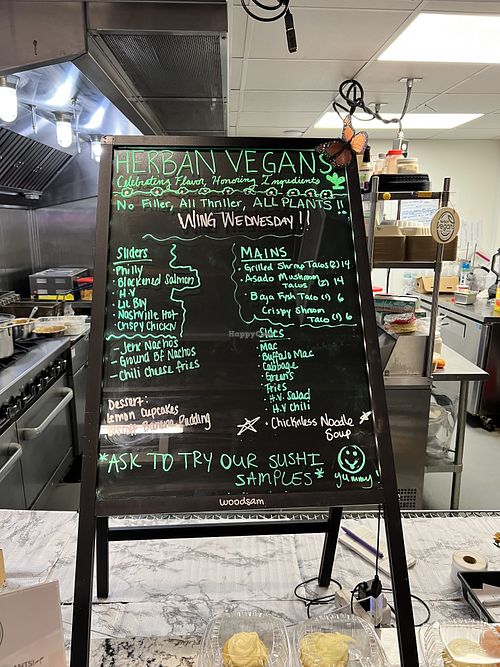 HERBAN VEGANS
Celebrating Flavor, Honoring Ingredients
No Filler, All Thriller, ALL PLANTS !!
WING WEDNESDAY !!
Sliders
· Philly
· Blackened Salmon
· H.V
· LIL BOY
· Nashville Hot
· Crispy Chick'n
- Jerk Nachos
- Ground Bf Nachos
- Chili cheese fries
Dessert:
Lemon Cupcakes
Banana Pudding
MAINS
· Grilled Shrimp Tacos (2) 14
· Asado Mushroom Tacos (2) 14
Baja Fysh Taco (1) 6
Crispy Shroom Taco (1) 6
Sides
· Mac
· Buffalo Mac
· Cabbage
· Greens
· Fries
· H.V. Salad
· H.V Chili
· Chicknless Noodle Soup
*ASK TO TRY OUR SUSHI
SAMPLES*
yummy
woodsam
HappyCow